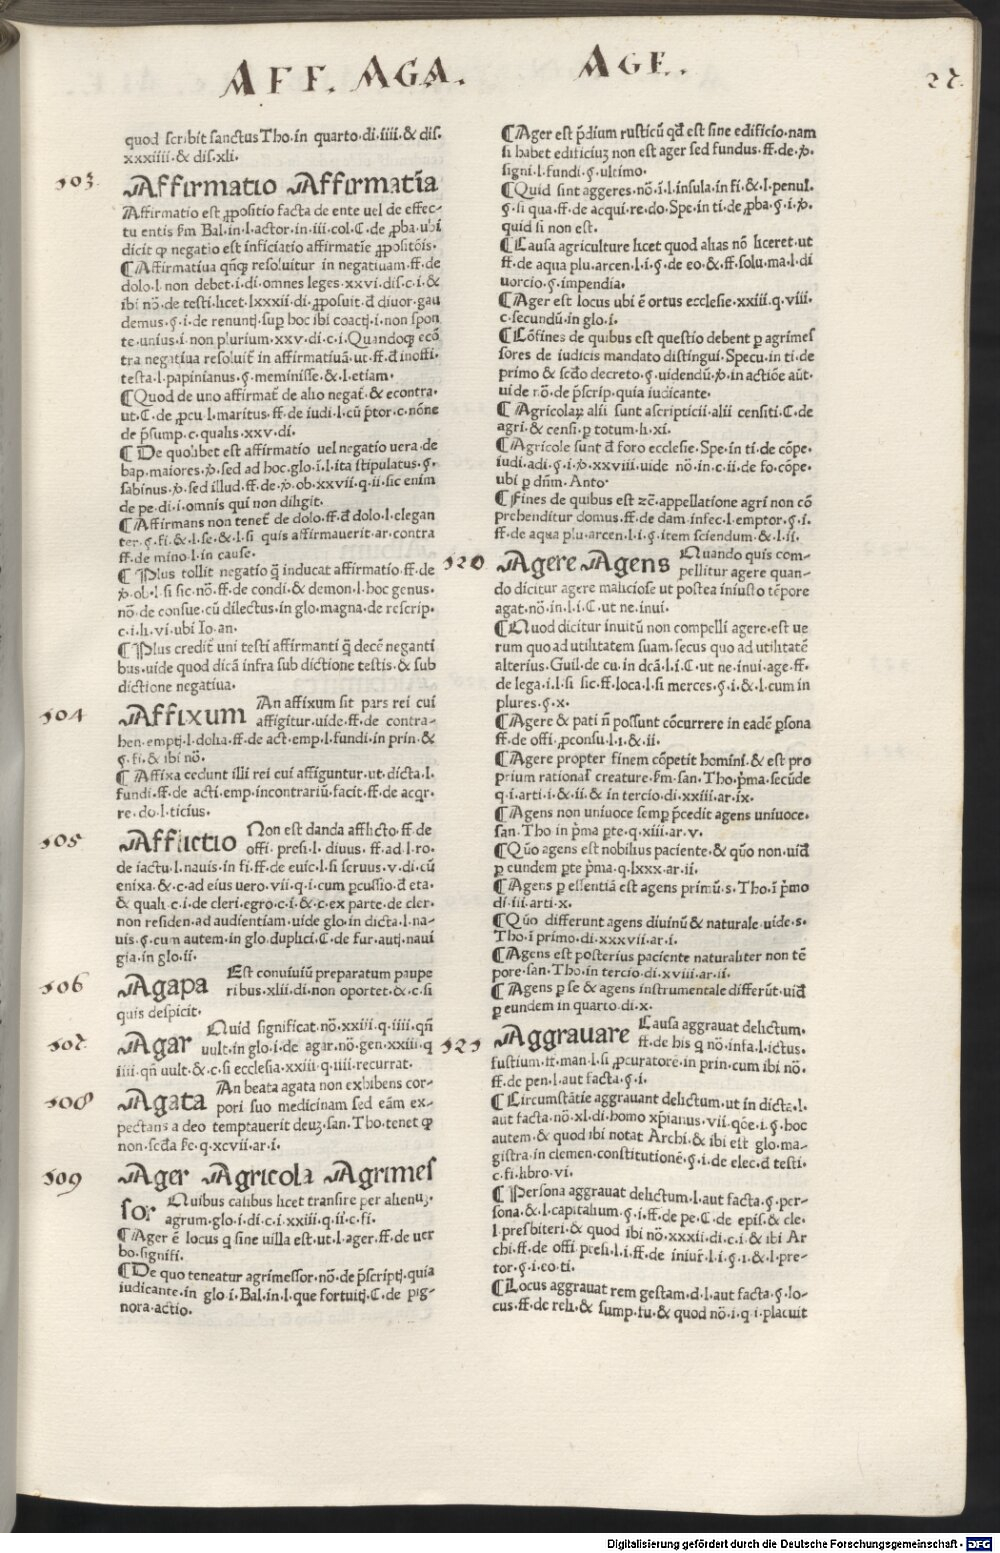 AFF. AGA. AGE.
27.
quod scribit sanctus Tho.in quarto.di.iiii.& dis.
xxxiiii.& dis.xli.
103.
Affirmatio Affirmatīa
Affirmatio est ꝓpositio facta de ente uel de effec-
tu entis fm Bal.in.l.actor.in.iii.col.C.de ꝓba.ubi
dicit qp negatio est inficiatio affirmatie ꝓpositōis.
¶Affirmatiua qñqꝫ resoluitur in negatiuam.ff.de
dolo.l.non debet.i.di.omnes leges.xxvi.dis.c.i.&
ibi nō.de testi.licet.lxxxii.di.ꝓposuit.đ diuor.gau
demus.§.i.de renuntj.suꝑ hoc ibi coactj.i.non spon
te.unius.i.non plurium.xxv.di.c.i.Quandoqꝫ ecō
tra negatiua resoluit̄ in affirmatiuā.ut.ff.đ inoffi.
testa.l.papinianus.§.meminisse.& l.etiam.
¶Quod de uno affirmat̄ de alio negat̄.& econtra.
ut.C.de ꝓcu.l.maritus.ff.de iudi.l.cū p̄tor.c.nōne
de p̄sump.c.qualis.xxv.di.
¶De quolibet est affirmatio uel negatio uera.de
bap.maiores.ꝟ.sed ad hoc.glo.ī.l.ita stipulatus.§.
sabinus.ꝟ.sed illud.ff.de.ꝟ.ob.xxvii.q.ii.sic enim
de pe.di.i.omnis qui non diligit.
¶Affirmans non tenet̄ de dolo.ff.đ dolo.l.elegan
ter.§.fi.& l.se.& l.si quis affirmauerit.ar.contra
ff.de mino.l.in cause.
¶Plus tollit negatio q̄ inducat affirmatio.ff.de
ꝟ.ob.l.si sic.nō.ff.de condi.& demon.l.hoc genus.
nō.de consue.cū dilectus.in glo.magna.de rescrip.
c.i.li.vi.ubi Io.an.
¶Plus credit̄ uni testi affirmanti q̄ decē neganti
bus.uide quod dicā infra sub dictione testis.& sub
dictione negatiua.
104
Affixum An affixum sit pars rei cui
affigitur.uide.ff.de contra-
hen.emptj.l.dolia.ff.de act.emp.l.fundi.in prin.&
§.fi.& ibi nō.
¶Affixa cedunt illi rei cui affiguntur.ut.dicta.l.
fundi.ff.de acti.emp.incontrariū.facit.ff.de acqr.
re.do.l.ticius.
105
Afflictio Non est danda afflicto.ff.de
offi.presi.l.diuus.ff.ad.l.ro.
de iactu.l.nauis.in fi.ff.de euic.l.si seruus.v.di.cū
enixa.&.c.ad eius uero.vii.q.i.cum ꝑcussio.đ eta.
& quali.c.i.de cleri.egro.c.i.&.c.ex parte.de cler.
non residen.ad audientiam.uide glo.in dicta.l.na-
uis.§.cum autem.in glo.duplici.C.de fur.autj.naui
gia.in glo.ii.
106
Agapa Est conuiuiū preparatum paupe
ribus.xlii.di.non oportet.&.c.si
quis despicit.
107.
Agar Quid significat.nō.xxiii.q.iiii.qñ
uult.in glo.i.de agar.nō.gen.xxiii.q
iiii.qñ uult.&.c.si ecclesia.xxiii.q.iiii.recurrat.
108
Agata An beata agata non exhibens cor-
pori suo medicinam sed eām ex-
pectans a deo temptauerit deuꝫ.san.Tho.tenet qp
non.secđa sce.q.xcvii.ar.i.
109
Ager Agricola Agrimes
sor Quibus casibus licet transire per alienuꝫ.
agrum.glo.i.di.c.i.xxiii.q.ii.c.fi.
¶Ager ē locus q sine uilla est.ut.l.ager.ff.de uer
bo.signifi.
¶De quo teneatur agrimessor.nō.de p̄scriptj.quia
iudicante.in glo.i.Bal.in.l.que fortuitj.C.de pig-
nora.actio.
¶Ager est p̄dium rusticū qđ est sine edificio.nam
si habet edificiuꝫ non est ager sed fundus.ff.de.ꝟ.
signi.l.fundi.§.ultimo.
¶Quid sint aggeres.nō.ī.l.insula.in fi.&.l.penul.
§.si qua.ff.de acqui.re.do.Spe.in ti.de ꝓba.§.i.ꝟ.
quid si non est.
¶Causa agriculture licet quod alias nō liceret.ut
ff.de aqua plu.arcen.l.i.§.de eo.&.ff.solu.ma.l.di
uorcio.§.impendia.
¶Ager est locus ubi ē ortus ecclesie.xxiii.q.viii.
c.secundū.in glo.i.
¶Cōfines de quibus est questio debent ꝑ agrimes
sores de iudicis mandato distingui.Specu.in ti.de
primo & scđo decreto.§.uidendū.ꝟ.in actiōe aūt.
uide.rō.de p̄scrip.quia iudicante.
¶Agricolaꝝ alii sunt ascripticii.alii censiti.C.de
agri.& censi.ꝑ totum.li.xi.
¶Agricole sunt đ foro ecclesie.Spe.in ti.de cōpe.
iudi.adi.§.i.ꝟ.xxviii.uide nō.in.c.ii.de fo.cōpe.
ubi ꝑ dn̄m.Anto.
¶Fines de quibus est zc̄.appellatione agri non cō
prehenditur domus.ff.de dam.infec.l.emptor.§.i.
ff.de aqua plu.arcen.l.i.§.item sciendum.&.l.ii.
120.
Agere Agens Quando quis com-
pellitur agere quan-
do dicitur agere maliciose ut postea iniusto tēpore
agat.nō.in.l.i.C.ut ne.inui.
¶Quod dicitur inuitū non compelli agere.est ue
rum quo ad utilitatem suam.secus quo ad utilitatē
alterius.Guil.de cu.in dcā.l.i.C.ut ne.inui.age.ff.
de lega.i.l.si sic.ff.loca.l.si merces.§.i.& l.cum in
plures.§.x.
¶Agere & pati n̄ possunt cōcurrere in eadē ꝑsona
ff.de offi.ꝓconsu.l.i.& ii.
¶Agere propter finem cōpetit homini.& est pro
prium rationaľ creature.fm.san.Tho.p̄ma.secūde
q.i.arti.i.& ii.& in tercio di.xxiii.ar.ix.
¶Agens non uniuoce semꝑ p̄cedit agens uniuoce.
san.Tho in p̄ma pte.q.xiii.ar.v.
¶Quō agens est nobilius paciente.& quō non.uiđ
ꝑ eundem ꝑte p̄ma.q.lxxx.ar.ii.
¶Agens ꝑ essentiā est agens primū.s.Tho.ī p̄mo
di.iii.arti.x.
¶Quō differunt agens diuinū & naturale.uide.s.
Tho.ī primo.di.xxxvii.ar.i.
¶Agens est posterius paciente naturaliter non tē
pore.san.Tho.in tercio.di.xviii.ar.ii.
¶Agens ꝑ se & agens instrumentale differūt.uiđ
ꝑ eundem in quarto.di.x.
121
Aggrauare Causa aggrauat delictum.
ff.de his q nō.infa.l.ictus.
fustium.ff.man.l.si ꝓcuratorē.in prin.cum ibi nō.
ff.de pen.l.aut facta.§.i.
¶Circumstātie aggrauant delictum.ut in dicta.l.
aut facta.nō.xl.di.homo xp̄ianus.vii.qōe.i.§.hoc
autem.& quod ibi notat Archi.& ibi est glo.ma-
gistra.in clemen.constitutionē.§.i.de elec.đ testi.
c.fi.libro.vi.
¶Persona aggrauat delictum.l.aut facta.§.per-
sona.&.l.capitalium.§.i.ff.de pe.C.de epis.& cle.
l.presbiteri.& quod ibi nō.xxxii.di.c.i.& ibi Ar
chi.ff.de offi.presi.l.i.ff.de iniur.l.i.§.i.&.l.pre-
tor.§.i.eo.ti.
¶Locus aggrauat rem gestam.d.l.aut facta.§.lo-
cus.ff.de reli.& sump.fu.& quod nō.i.q.i.placuit
Digitalisierung gefördert durch die Deutsche Forschungsgemeinschaft - DFG